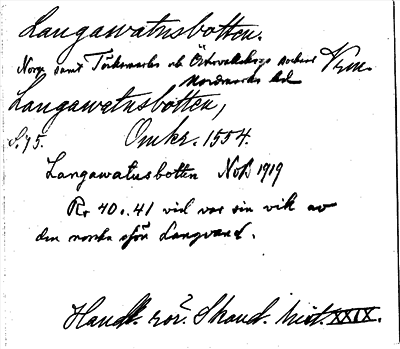 Langawatnsbotten.
Norge samt Töcksmarks och Östervallskogs socknar Verm.
Nordmarks hd
Langawatnsbotten,
S. 75. Omkr. 1554.
Langawatnsbotten NoB 1919
Rr 40 o. 41 vid var sin vik av
den norska sjön Langvand.
Handl. rör. Skand. hist. XXIX.